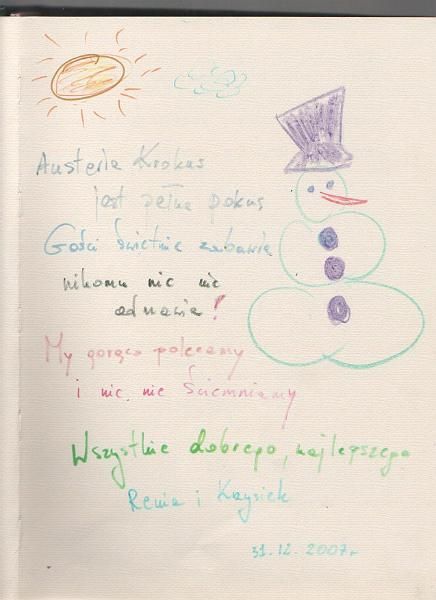 Austeria Krokus
jest pełna pokus
Gości świetnie zabawia
nikomu nic nie
odmawia!
My gorąco polecamy
i nic nie ściemniamy
Wszystkie dobrego, najlepszego
Renia i Krzysiek
31.12.2007r